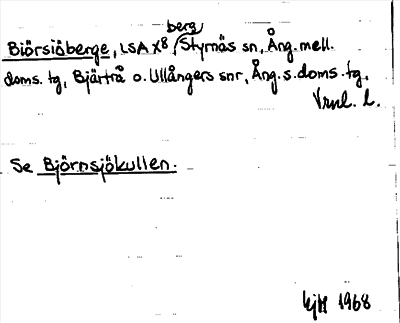 berg
Biörsiöberge, LSA X8 Styrnäs sn, Ång. mell.
doms. tg, Bjärtrå o. Ullångers snr, Ång. s. doms. tg.
Vrnl. L.
Se Björnsjökullen.
1968